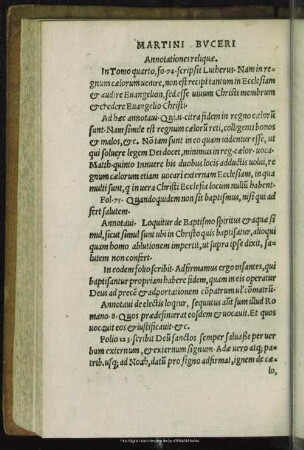 MARTINI BVCERI
Annotationes reliquæ.
In Tomo quarto, fo. 74. scripsit Lutherus. Nam in re-
gnum cælorum uenire, non est recipi tantum in Ecclesiam
& audire Euangelion, sed esse uiuum Christi membrum
& credere Euangelio Christi.
Ad hæc annotaui. Qui.n. citra fidem in regno cælorū
sunt. Nam simile est regnum cælorū reti, colligenti bonos
& malos, &c. Nō tam sunt in eo quam uidentur esse, ut
qui soluere legem Dei docet, minimus in reg. cælor. uoca.
Matth. quinto Innuere his duobus locis adductis uolui, re
gnum cælorum etiam uocari externam Ecclesiam, in qua
multi sunt, q in uera Christi Ecclesia locum nullū habent.
Fol. 75. Quandoquidem non sit baptismus, nisi qui ad
fert salutem.
Annotaui. Loquitur de Baptismo spiritus & aquæ si
mul, sicut simul sunt ubi in Christo quis baptisatur, alioqui
quam homo ablutionem impertit, ut supra ipse dixit, sa-
lutem non confert.
In eodem folio scribit. Adfirmamus ergo infantes, qui
baptisantur propriam habere fidem, quam in eis operatur
Deus ad precē & adportationem cōpatrum uel cōmatrū.
Annotaui de electis loqitur, sequatus aūt sum illud Ro
mano. 8. Quos prædefinierat eosdem & uocauit. Et quos
uocauit eos & iustificauit. &c.
Folio 123. scribit Deū sanctos semper saluasse per uer
bum externum, & externum signum. Adæ uero atq; pa-
trib. usq; ad Noah, datū pro signo adfirmat, ignem de cæ-
lo,